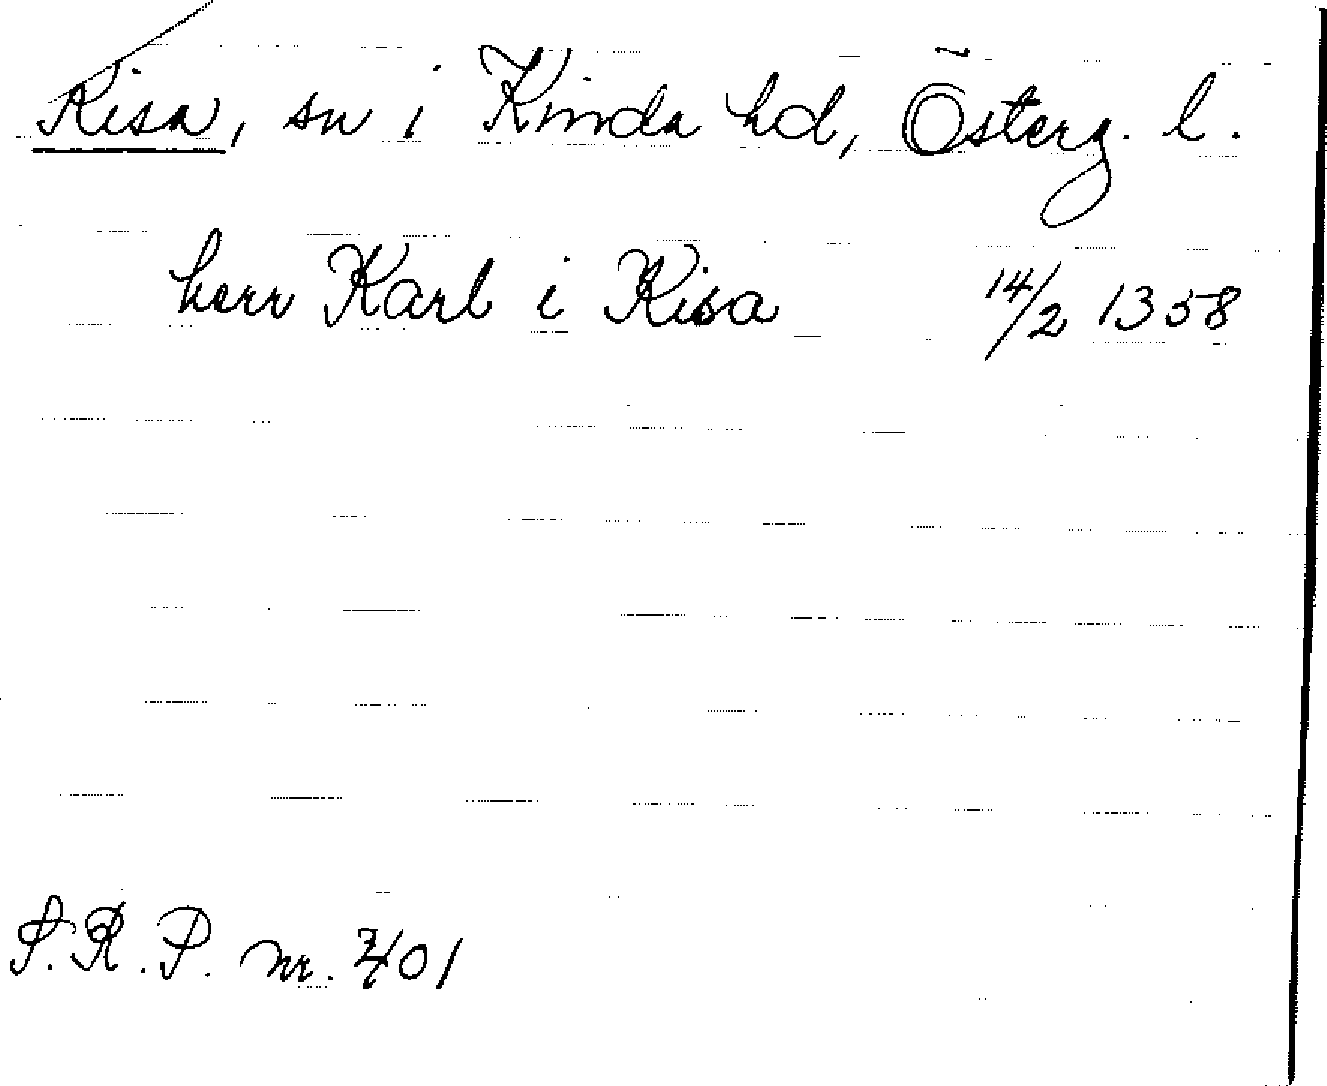 Kisa, sn i Kinda hd, Österg. l.
herr Karl i Kisa 14/2 1358
S.R.P. nr.